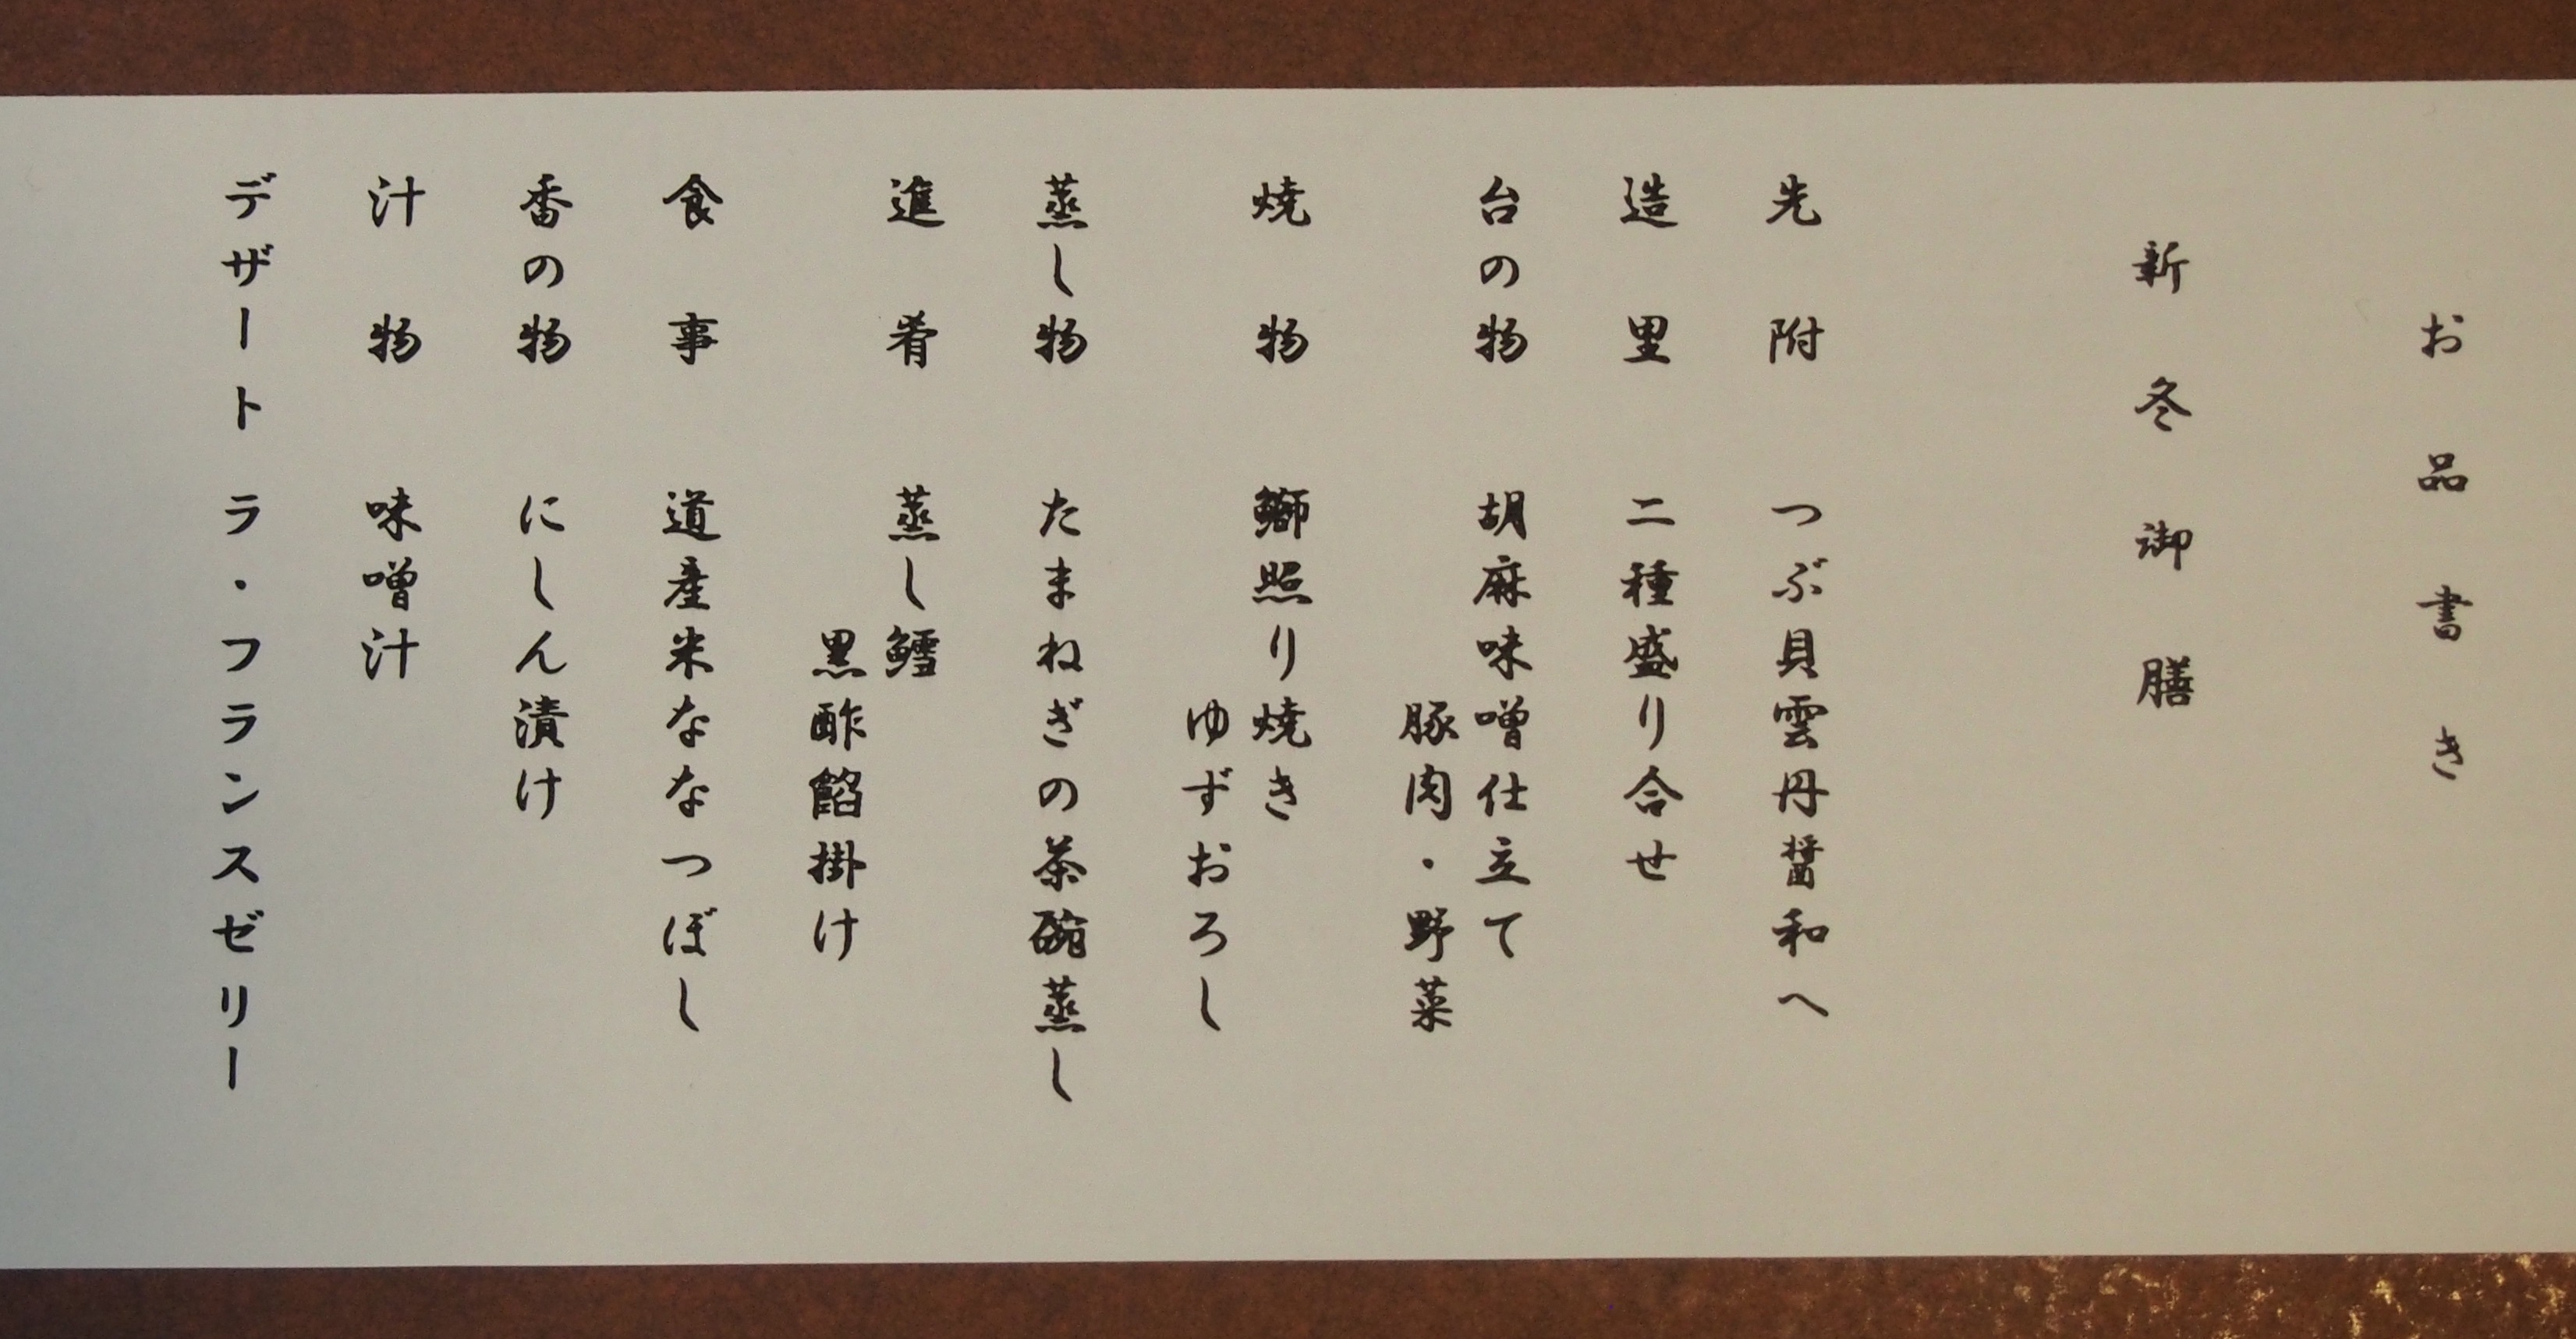 お品書き
新冬御膳
先附 つぶ貝雲丹醤和へ
造里 二種盛り合せ
台の物 胡麻味噌仕立て
豚肉・野菜
焼物 鰤照り焼き
ゆずおろし
蒸し物 たまねぎの茶碗蒸し
進肴 蒸し鱈
黒酢餡掛け
食事 道産米ななつぼし
香の物 にしん漬け
汁物 味噌汁
デザート ラ・フランスゼリー